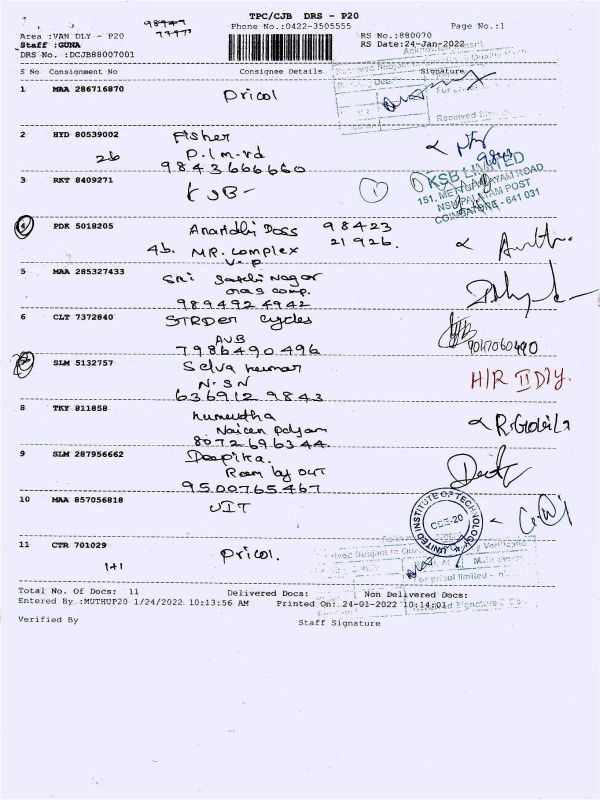 TPC/CJB DRS - P20
Phone No.:0422-3505555
Page No.:1
Area :VAN DLY - P20
Staff :GUNA
DRS No. :DCJB88007001
RS No.:880070
RS Date:24-Jan-2022
S No Consignment No Consignee Details Signature
1 MAA 286716870 Pricol
2 HYD 80539002 Fisher
26 P.l m-rd
9843666660
3 RKT 8409271 KSB-
KSB LIMITED
151, METTUPALAYAM ROAD
NSN PALAYAM POST
COIMBATORE - 641 031
4 PDK 5018205 Anandhi Doss 98423
4b. MR. complex 21926.
V-P
5 MAA 285327433 Sri Sakthi Nagar
comp.
9894924942
6 CLT 7372840 STRDer cycles
AVB
7986490496
9047060490
SLM 5132757 Selva kumar
N.SN
636912 9843
H/R II Dly.
8 TKY 811858
8072696344
9 SLM 287956662 Deepika.
Room by OUT
9500765467
10 MAA 857056818 UIT
UNITED INSTITUTE OF TECHNOLOGY
CBE-20
11 CTR 701029 Pricol.
1+1
Total No. Of Docs: 11 Delivered Docs: Non Delivered Docs:
Entered By :MUTHUP20 1/24/2022 10:13:56 AM Printed On: 24-01-2022 10:14:01
Verified By Staff Signature